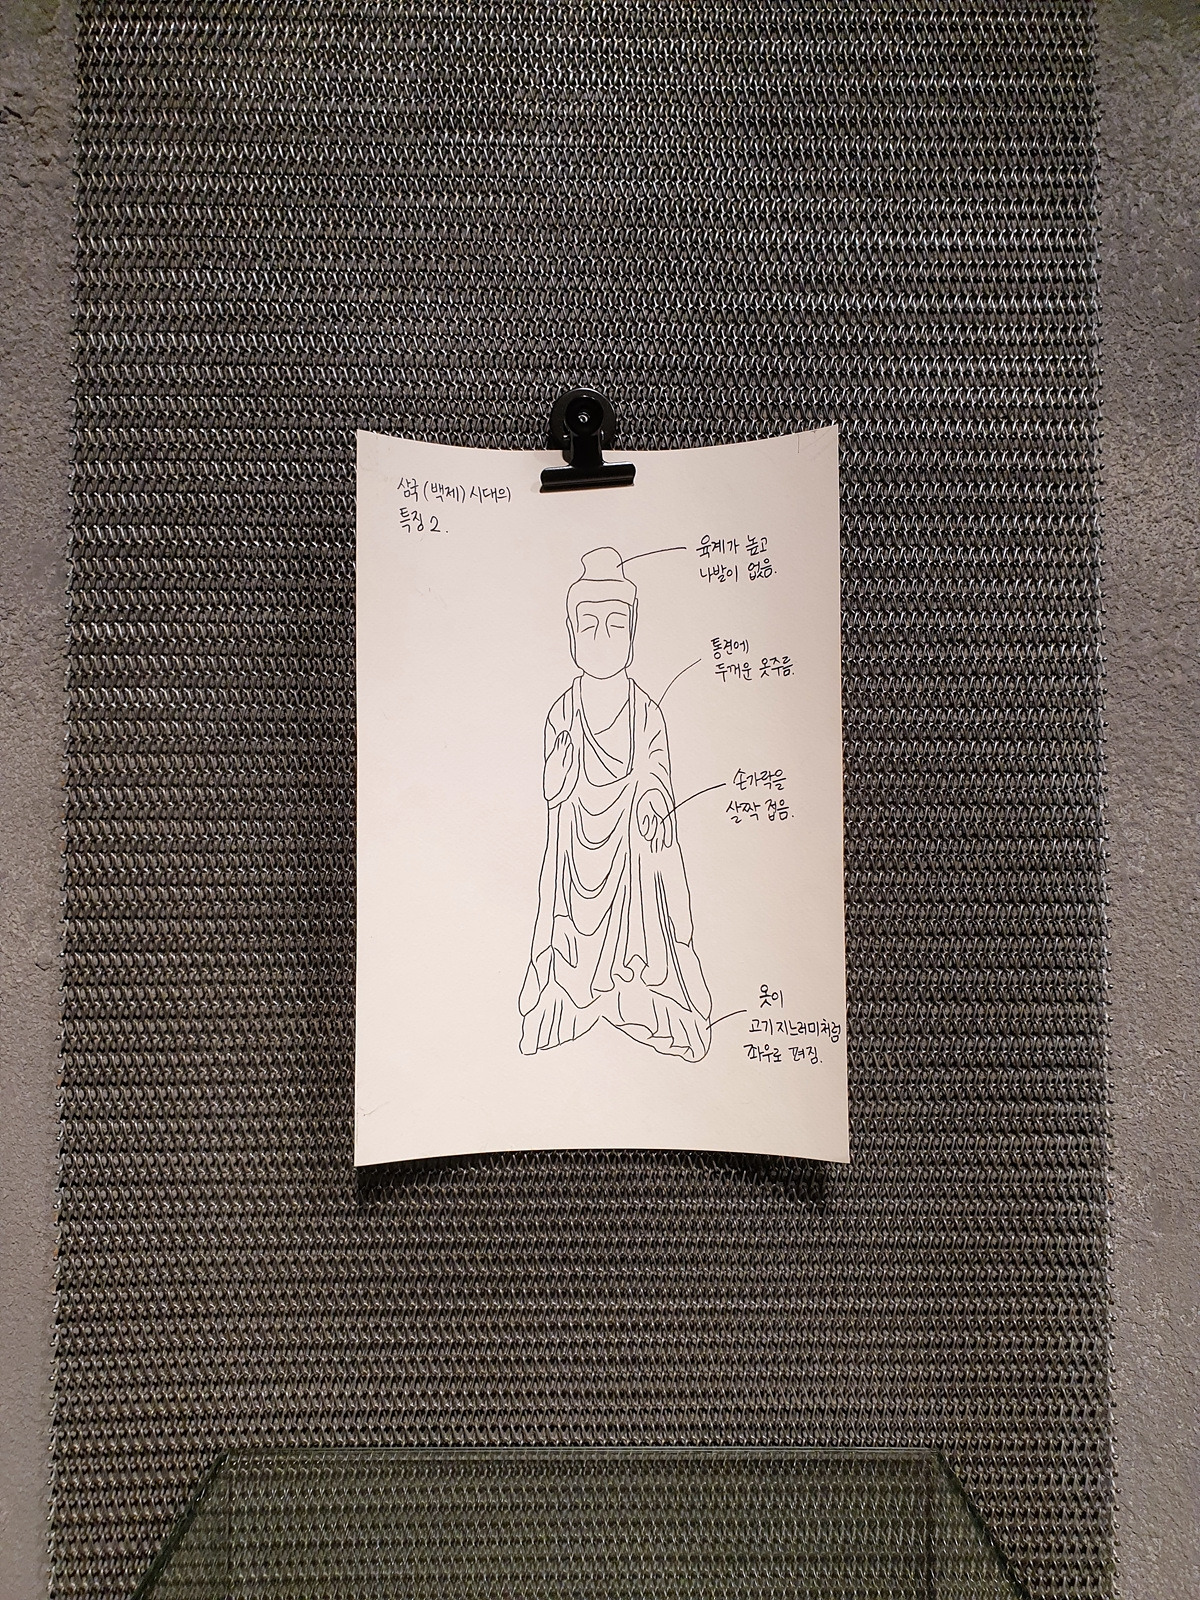 삼국 (백제) 시대의
특징 2.
육계가 높고
나발이 없음.
통견에
두꺼운 옷주름.
손가락을
살짝 접음.
옷이
고기지느러미처럼
좌우로 펴짐.